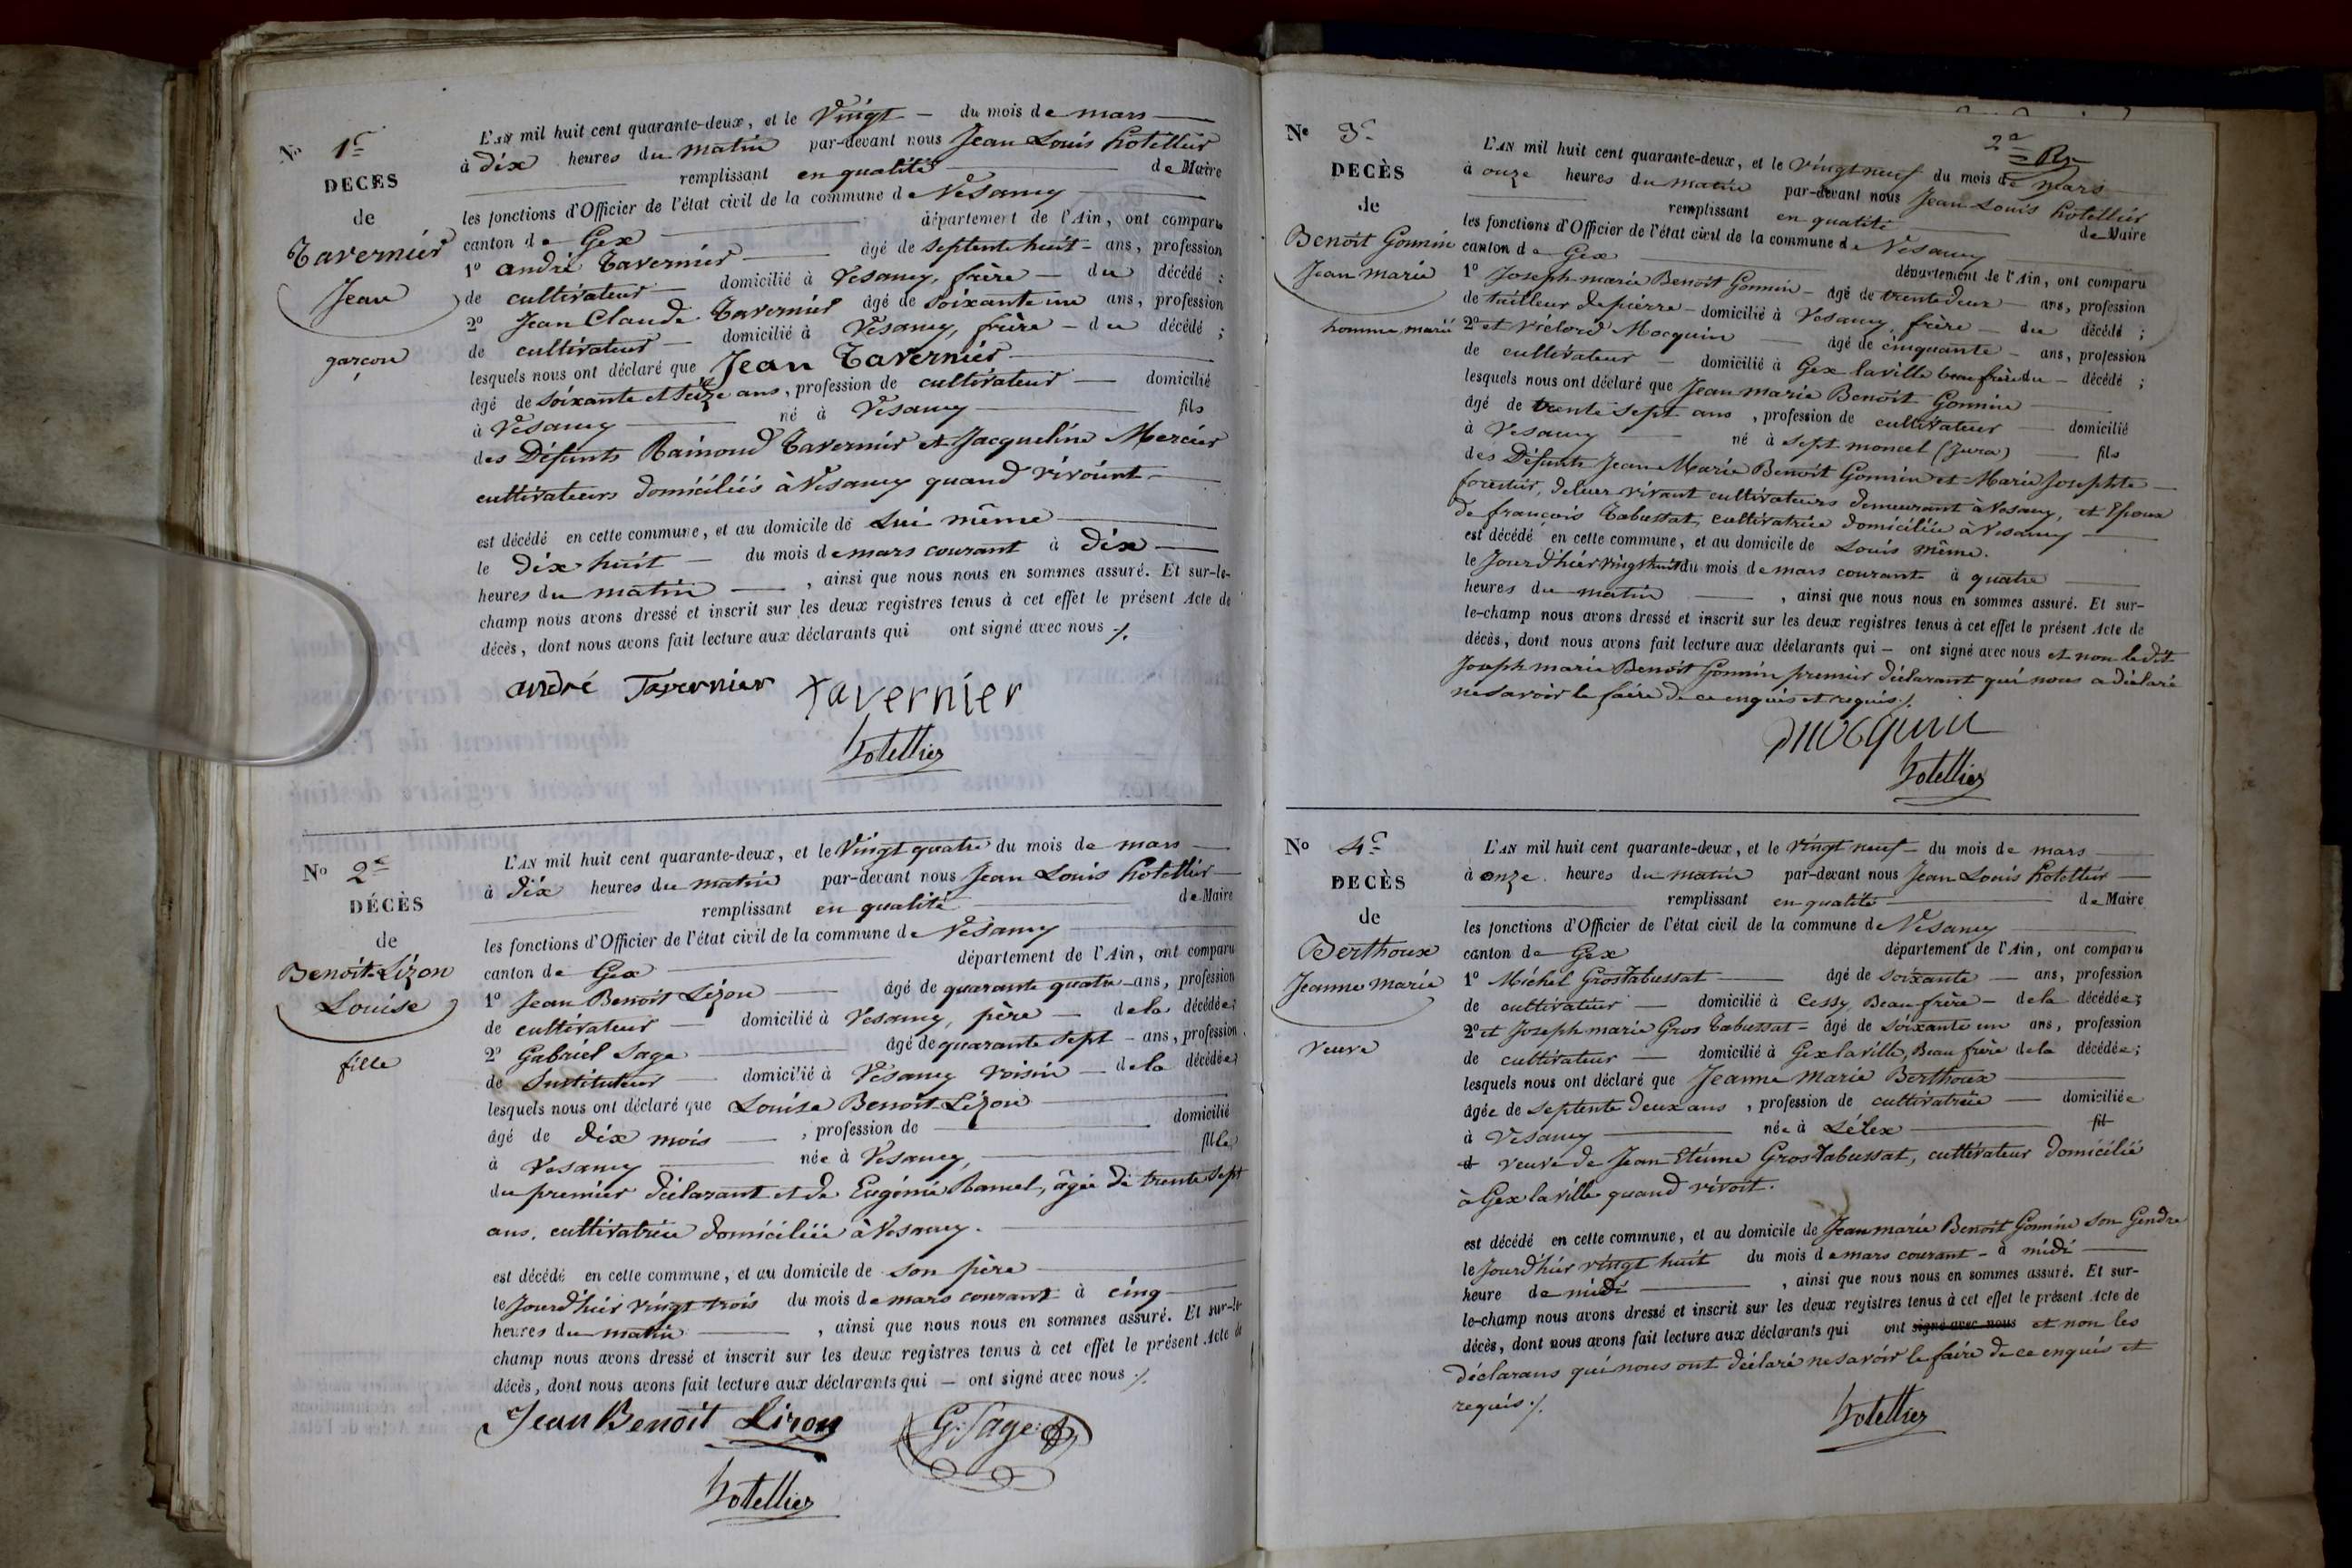 No 1er
DECES
de
Tavernier
Jean
garçon
L'AN mil huit cent quarante-deux, et le Vingt du mois de mars
à dix heures du matin par-devant nous Jean Louis hotellier
remplissant en qualité de Maire
les fonctions d'Officier de l'état civil de la commune de Vesancy
canton de Gex département de l'Ain, ont comparu
1º andré Tavernier âgé de septente huit ans, profession
de cultivateur domicilié à Vesancy, frère du décédé ;
2º Jean Claude Tavernier âgé de soixante un ans, profession
de cultivateur domicilié à Vesancy, frère du décédé ;
lesquels nous ont déclaré que Jean Tavernier
âgé de soixante et seize ans, profession de cultivateur domicilié
à Vesancy né à Vesancy fils
des Défunts Raimond Tavernier et Jacqueline Mercier
cultivateurs domiciliés à Vesancy quand vivoient
est décédé en cette commune, et au domicile de Lui même
le dix huit du mois de mars courant à dix
heures du matin , ainsi que nous nous en sommes assuré. Et sur-le-
champ nous avons dressé et inscrit sur les deux registres tenus à cet effet le présent Acte de
décès, dont nous avons fait lecture aux déclarants qui ont signé avec nous ./.
andré Tavernier tavernier
hotellier
No 2e
DÉCÈS
de
Benoit-Lizon
Louise
fille
L'AN mil huit cent quarante-deux, et le Vingt quatre du mois de mars
à dix heures du matin par-devant nous Jean Louis hotellier
remplissant en qualité de Maire
les fonctions d'Officier de l'état civil de la commune de Vesancy
canton de Gex département de l'Ain, ont comparu
1º Jean Benoit Lizon âgé de quarante quatre ans, profession
de cultivateur domicilié à Vesancy, père de la décédée;
2º Gabriel Sage âgé de quarante sept ans, profession
de Instituteur domicilié à Vesancy voisin de la décédée;
lesquels nous ont déclaré que Louise Benoit-Lizon
âgé de dix mois , profession de domicilié
à Vesancy née à Vesancy, fille
du premier déclarant et de Eugénie Ramel, âgée de trente sept
ans, cultivatrice domiciliée à Vesancy.
est décédé en cette commune, et au domicile de son père
le Jourd'hier vingt trois du mois de mars courant à cinq
heures du matin , ainsi que nous nous en sommes assuré. Et sur-le-
champ nous avons dressé et inscrit sur les deux registres tenus à cet effet le présent Acte de
décès, dont nous avons fait lecture aux déclarants qui ont signé avec nous ./.
Jean Benoît Lizon G. Sage
hotellier
2e
No 3e
DECÈS
de
Benoit Gonnin
Jean marie
homme marié
L'AN mil huit cent quarante-deux, et le vingt neuf du mois de mars
à onze heures du matin par-devant nous Jean Louis hotellier
remplissant en qualité de Maire
les fonctions d'Officier de l'état civil de la commune de Vesancy
canton de Gex département de l'Ain, ont comparu
1º Joseph marie Benoit Gonnin âgé de trente deux ans, profession
de tailleur de pierre domicilié à Vesancy, frère du décédé ;
2º et Victord Mocquin âgé de cinquante ans, profession
de cultivateur domicilié à Gex la ville beau frère du décédé ;
lesquels nous ont déclaré que Jean marie Benoit Gonnin
âgé de trente sept ans , profession de cultivateur domicilié
à Vesancy né à Sept moncel (Jura) fils
des Défunts Jean Marie Benoit Gonnin et Marie Josephte
forestier, deleur vivant cultivateurs demeurant à Vesancy, et Epoux
de françois Tabussat, cultivatrice domiciliée à Vesancy
est décédé en cette commune, et au domicile de Louis même.
le Jourd'hier vingt huit du mois de mars courant à quatre
heures du matin , ainsi que nous nous en sommes assuré. Et sur-
le-champ nous avons dressé et inscrit sur les deux registres tenus à cet effet le présent Acte de
décès, dont nous avons fait lecture aux déclarants qui ont signé avec nous et non ledit
Joseph marie Benoit Gonnin premier déclarant qui nous a déclaré
ne savoir le faire de ce enquis et requis ./.
Mocquin
hotellier
No 4e
DECÈS
de
Berthoux
Jeanne marie
veuve
L'AN mil huit cent quarante-deux, et le vingt neuf du mois de mars
à onze heures du matin par-devant nous Jean Louis hotellier
remplissant en qualité de Maire
les fonctions d'Officier de l'état civil de la commune de Vesancy
canton de Gex département de l'Ain, ont comparu
1º Michel Gros Tabussat âgé de soixante ans, profession
de cultivateur domicilié à Cessy, Beau frère de la décédée;
2º et Joseph marie Gros Tabussat âgé de soixante un ans, profession
de cultivateur domicilié à Gex la ville, Beau frère de la décédée;
lesquels nous ont déclaré que Jeanne Marie Berthoux
âgée de septente deux ans , profession de cultivatrice domiciliée
à Vesancy née à Lélex fil
d veuve de Jean Etienne Gros Tabussat, cultivateur domicilié
à Gex la ville quand vivoit.
est décédé en cette commune, et au domicile de Jean marie Benoit Gonnin son Gendre
le Jourd'hier vingt huit du mois de mars courant à midi
heure de midi , ainsi que nous nous en sommes assuré. Et sur-
le-champ nous avons dressé et inscrit sur les deux registres tenus à cet effet le présent Acte de
décès, dont nous avons fait lecture aux déclarants qui ont signé avec nous et non les
déclarans qui nous ont déclaré ne savoir le faire de ce enquis et
requis ./.
hotellier